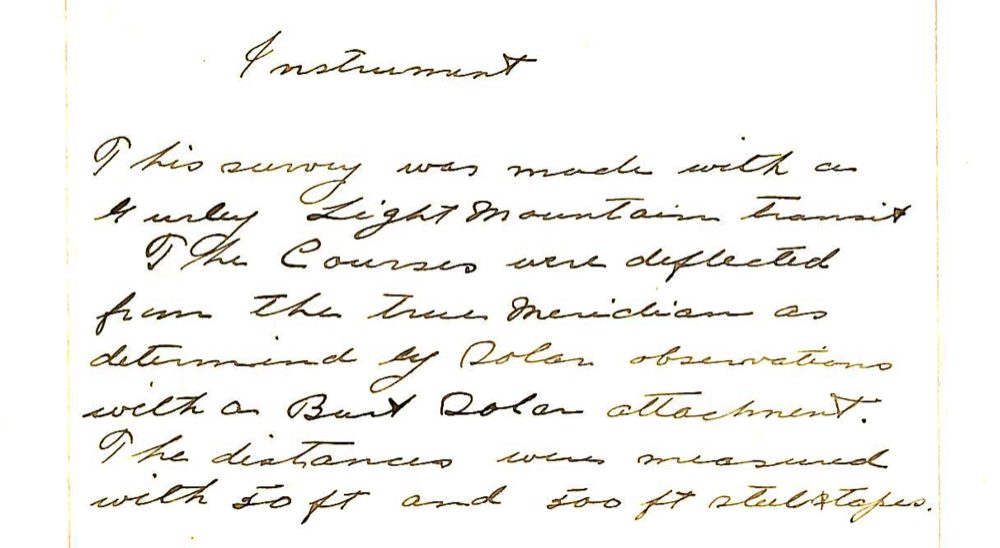 Instrument
This survey was made with a
Gurley Light Mountain transit
The Courses were deflected
from the true Meridian as
determind by Solar observations
with a Burt Solar attachment.
The distances were measured
with 50 ft and 500 ft steel tapes.